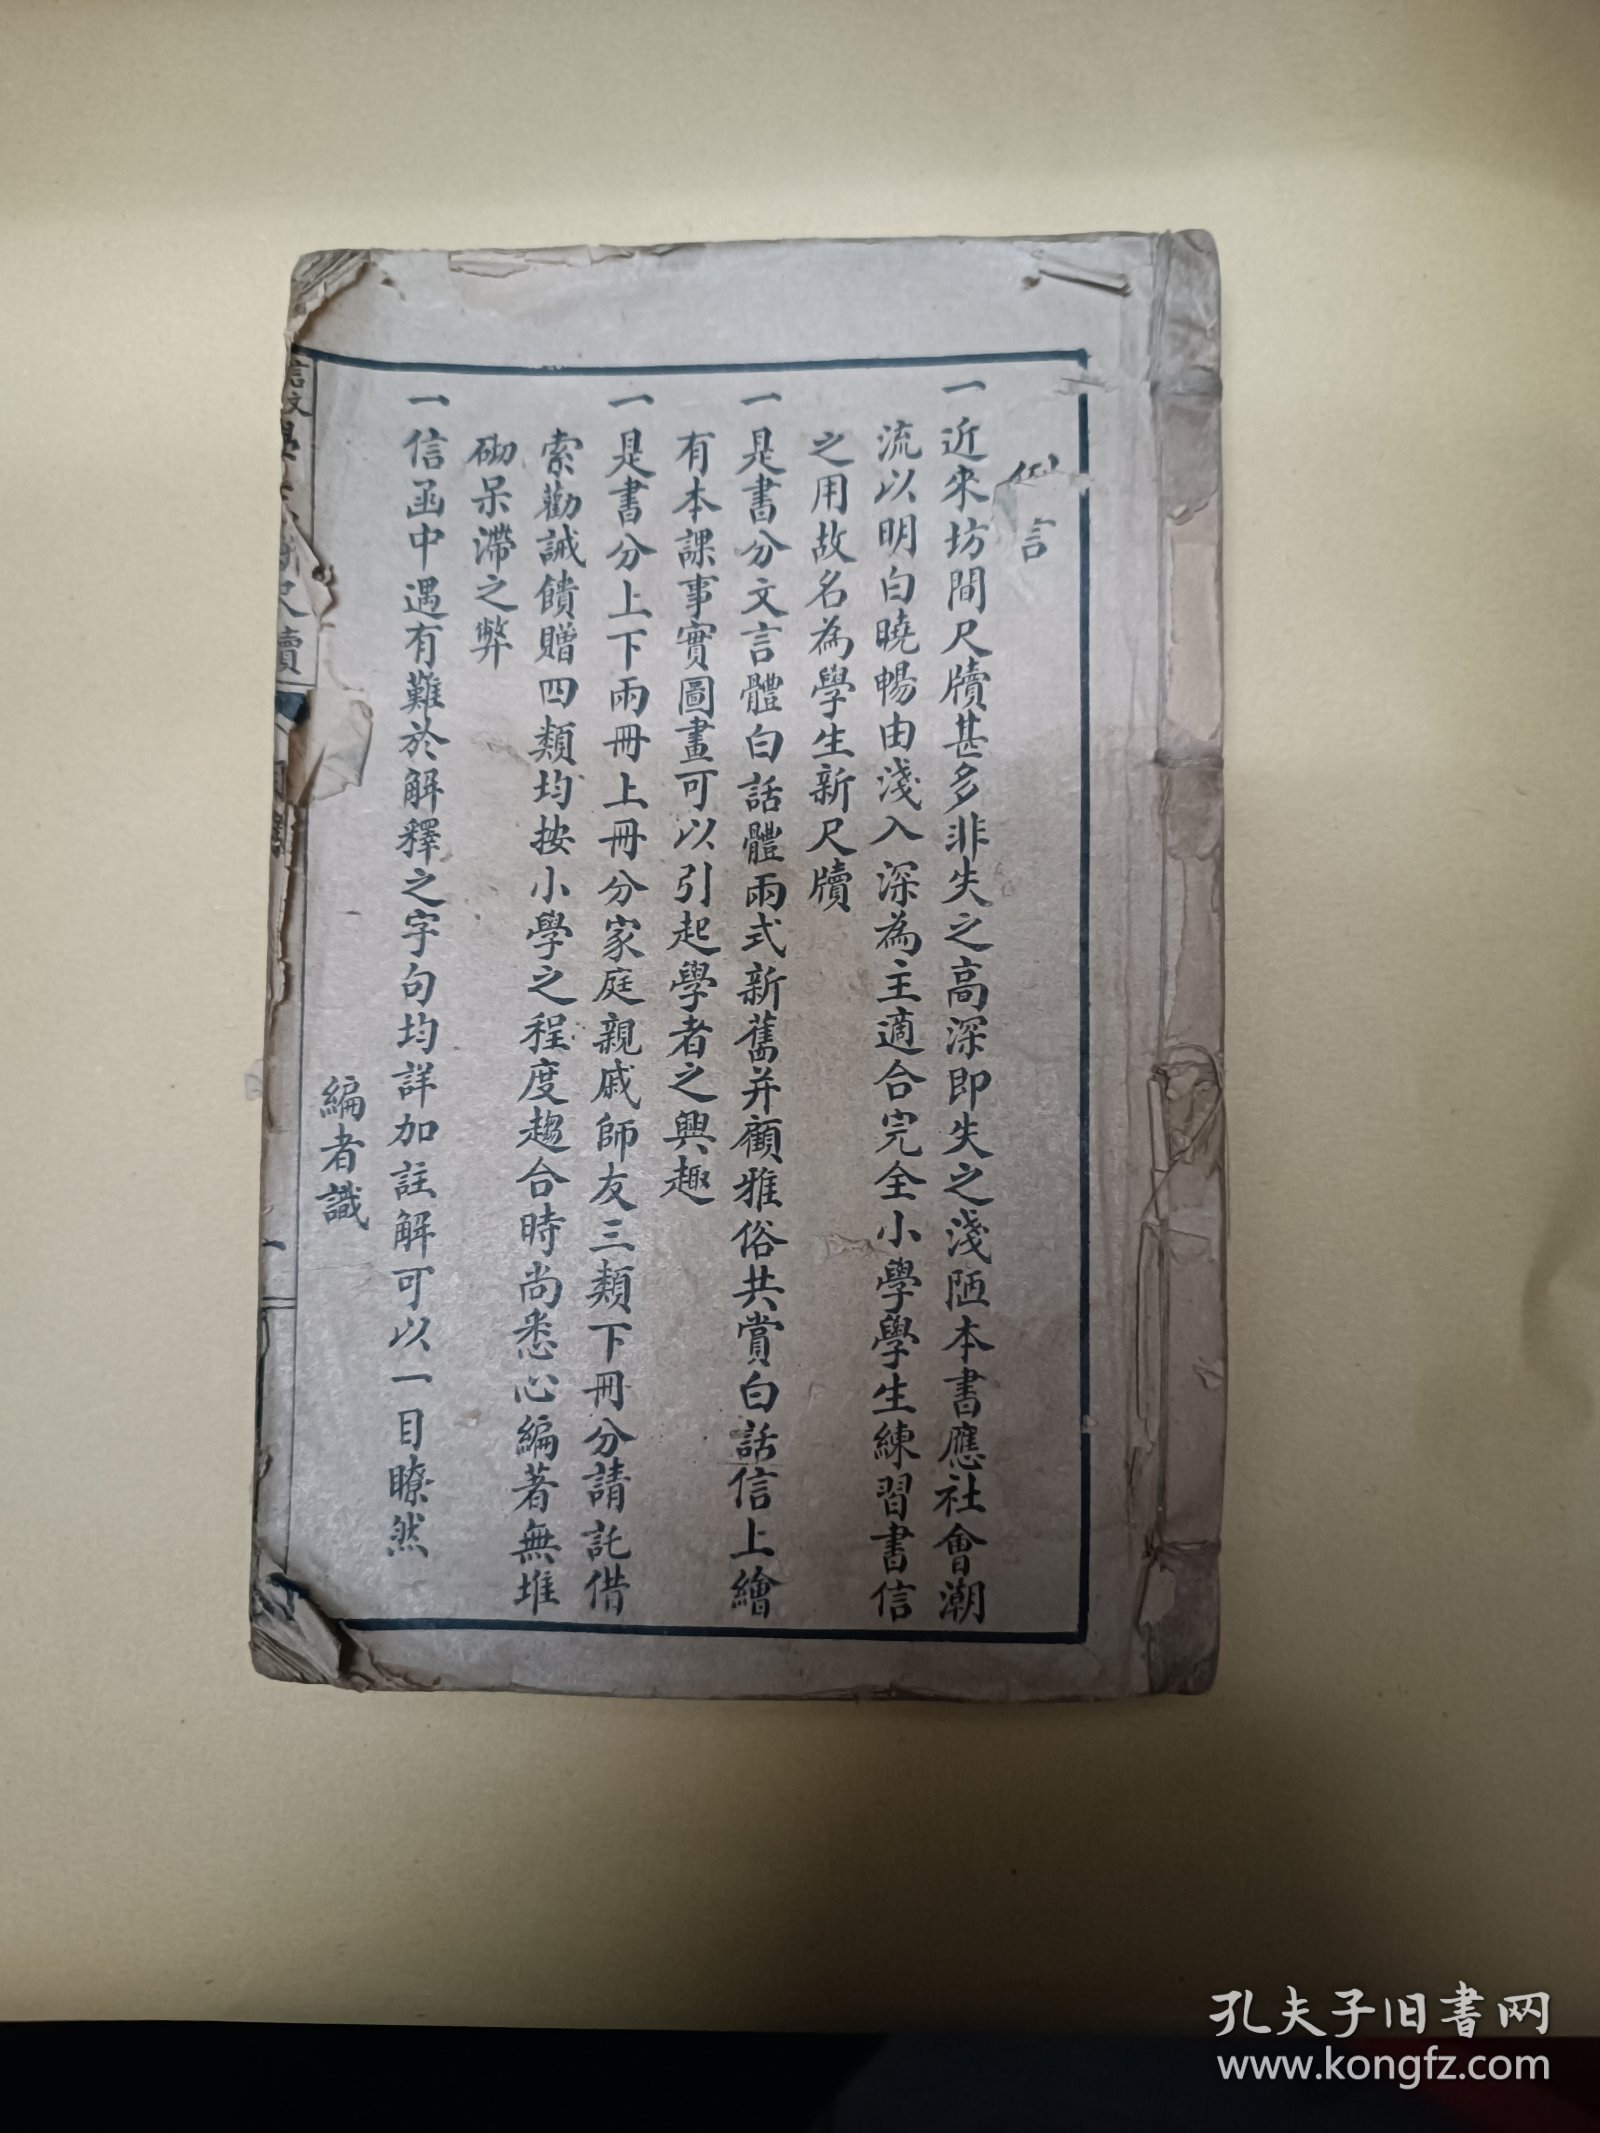 例言
一近來坊間尺牘甚多非失之高深即失之淺陋本書應社會潮
流以明白曉暢由淺入深為主適合完全小學學生練習書信
之用故名為學生新尺牘
一是書分文言體白話體兩式新舊并顧雅俗共賞白話信上繪
有本課事實圖畫可以引起學者之興趣
一是書分上下兩冊上冊分家庭親戚師友三類下冊分請託借
索勸誡饋贈四類均按小學之程度趨合時尚悉心編著無堆
砌呆滯之弊
一信函中遇有難於解釋之字句均詳加註解可以一目瞭然
編者識
尺牘
一
孔夫子旧书网
www.kongfz.com